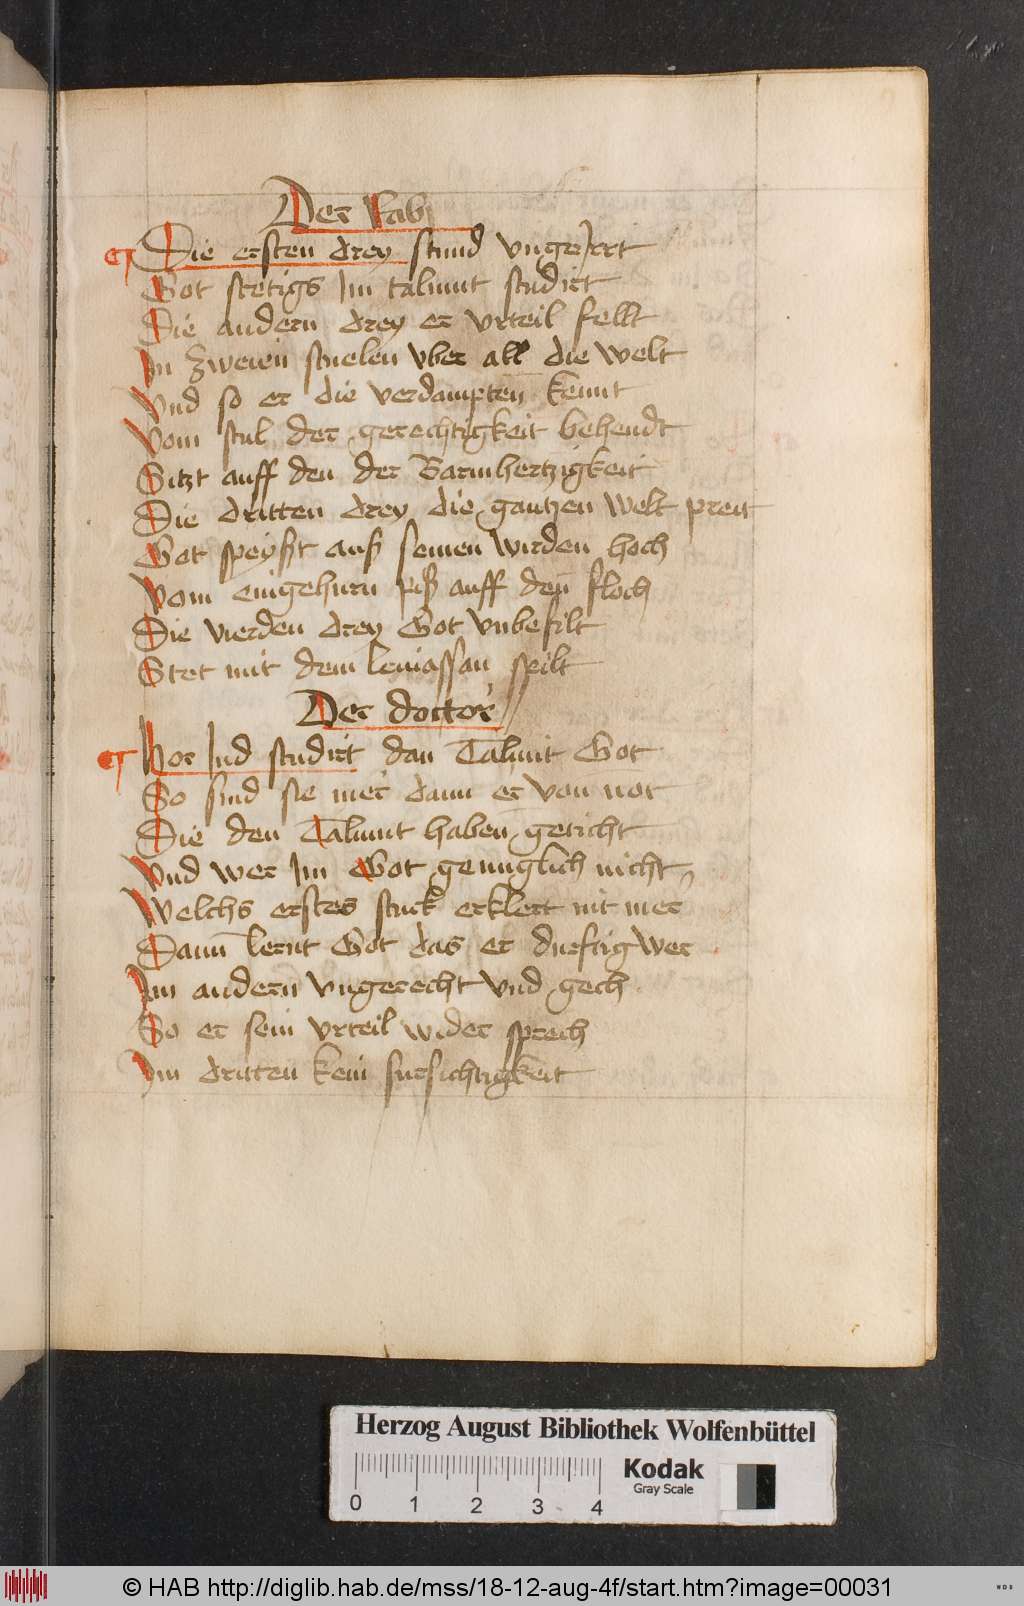 Der Rab
Die ersten drey stund vngejrrt
Got stetigs jm talmut studirt
Die andern drey er vrteil fellt
Jn zweien stuelen vber all die welt
Vnd so er die verdampten kennt
Vom stul der gerechtigkeit behendt
Sitzt auff den der Barmhertzigkeit
Die dritten drey die gantzen welt preit
Got speyßt auß seinen wirden hoch
Vom eingehurn piß auff den floch
Die vierden drey Got vnbefilt
Stet mit dem leuiassan spilt
Der doctor
Hor Jud studirt dan Talmut Got
So sind sie mer dann er von not
Die den Talmut haben geticht
Vnd wer jm Got genuglich nicht
Welchs erstes stuck erklert nit mer
Dann lernt Got das er durftig wer
Jm andern vngerecht vnd gech
So er sein vrteil wider sprech
Jm dritten kein fursichtigkeit
Herzog August Bibliothek Wolfenbüttel
0 1 2 3 4
Kodak
Gray Scale
© HAB http://diglib.hab.de/mss/18-12-aug-4f/start.htm?image=00031